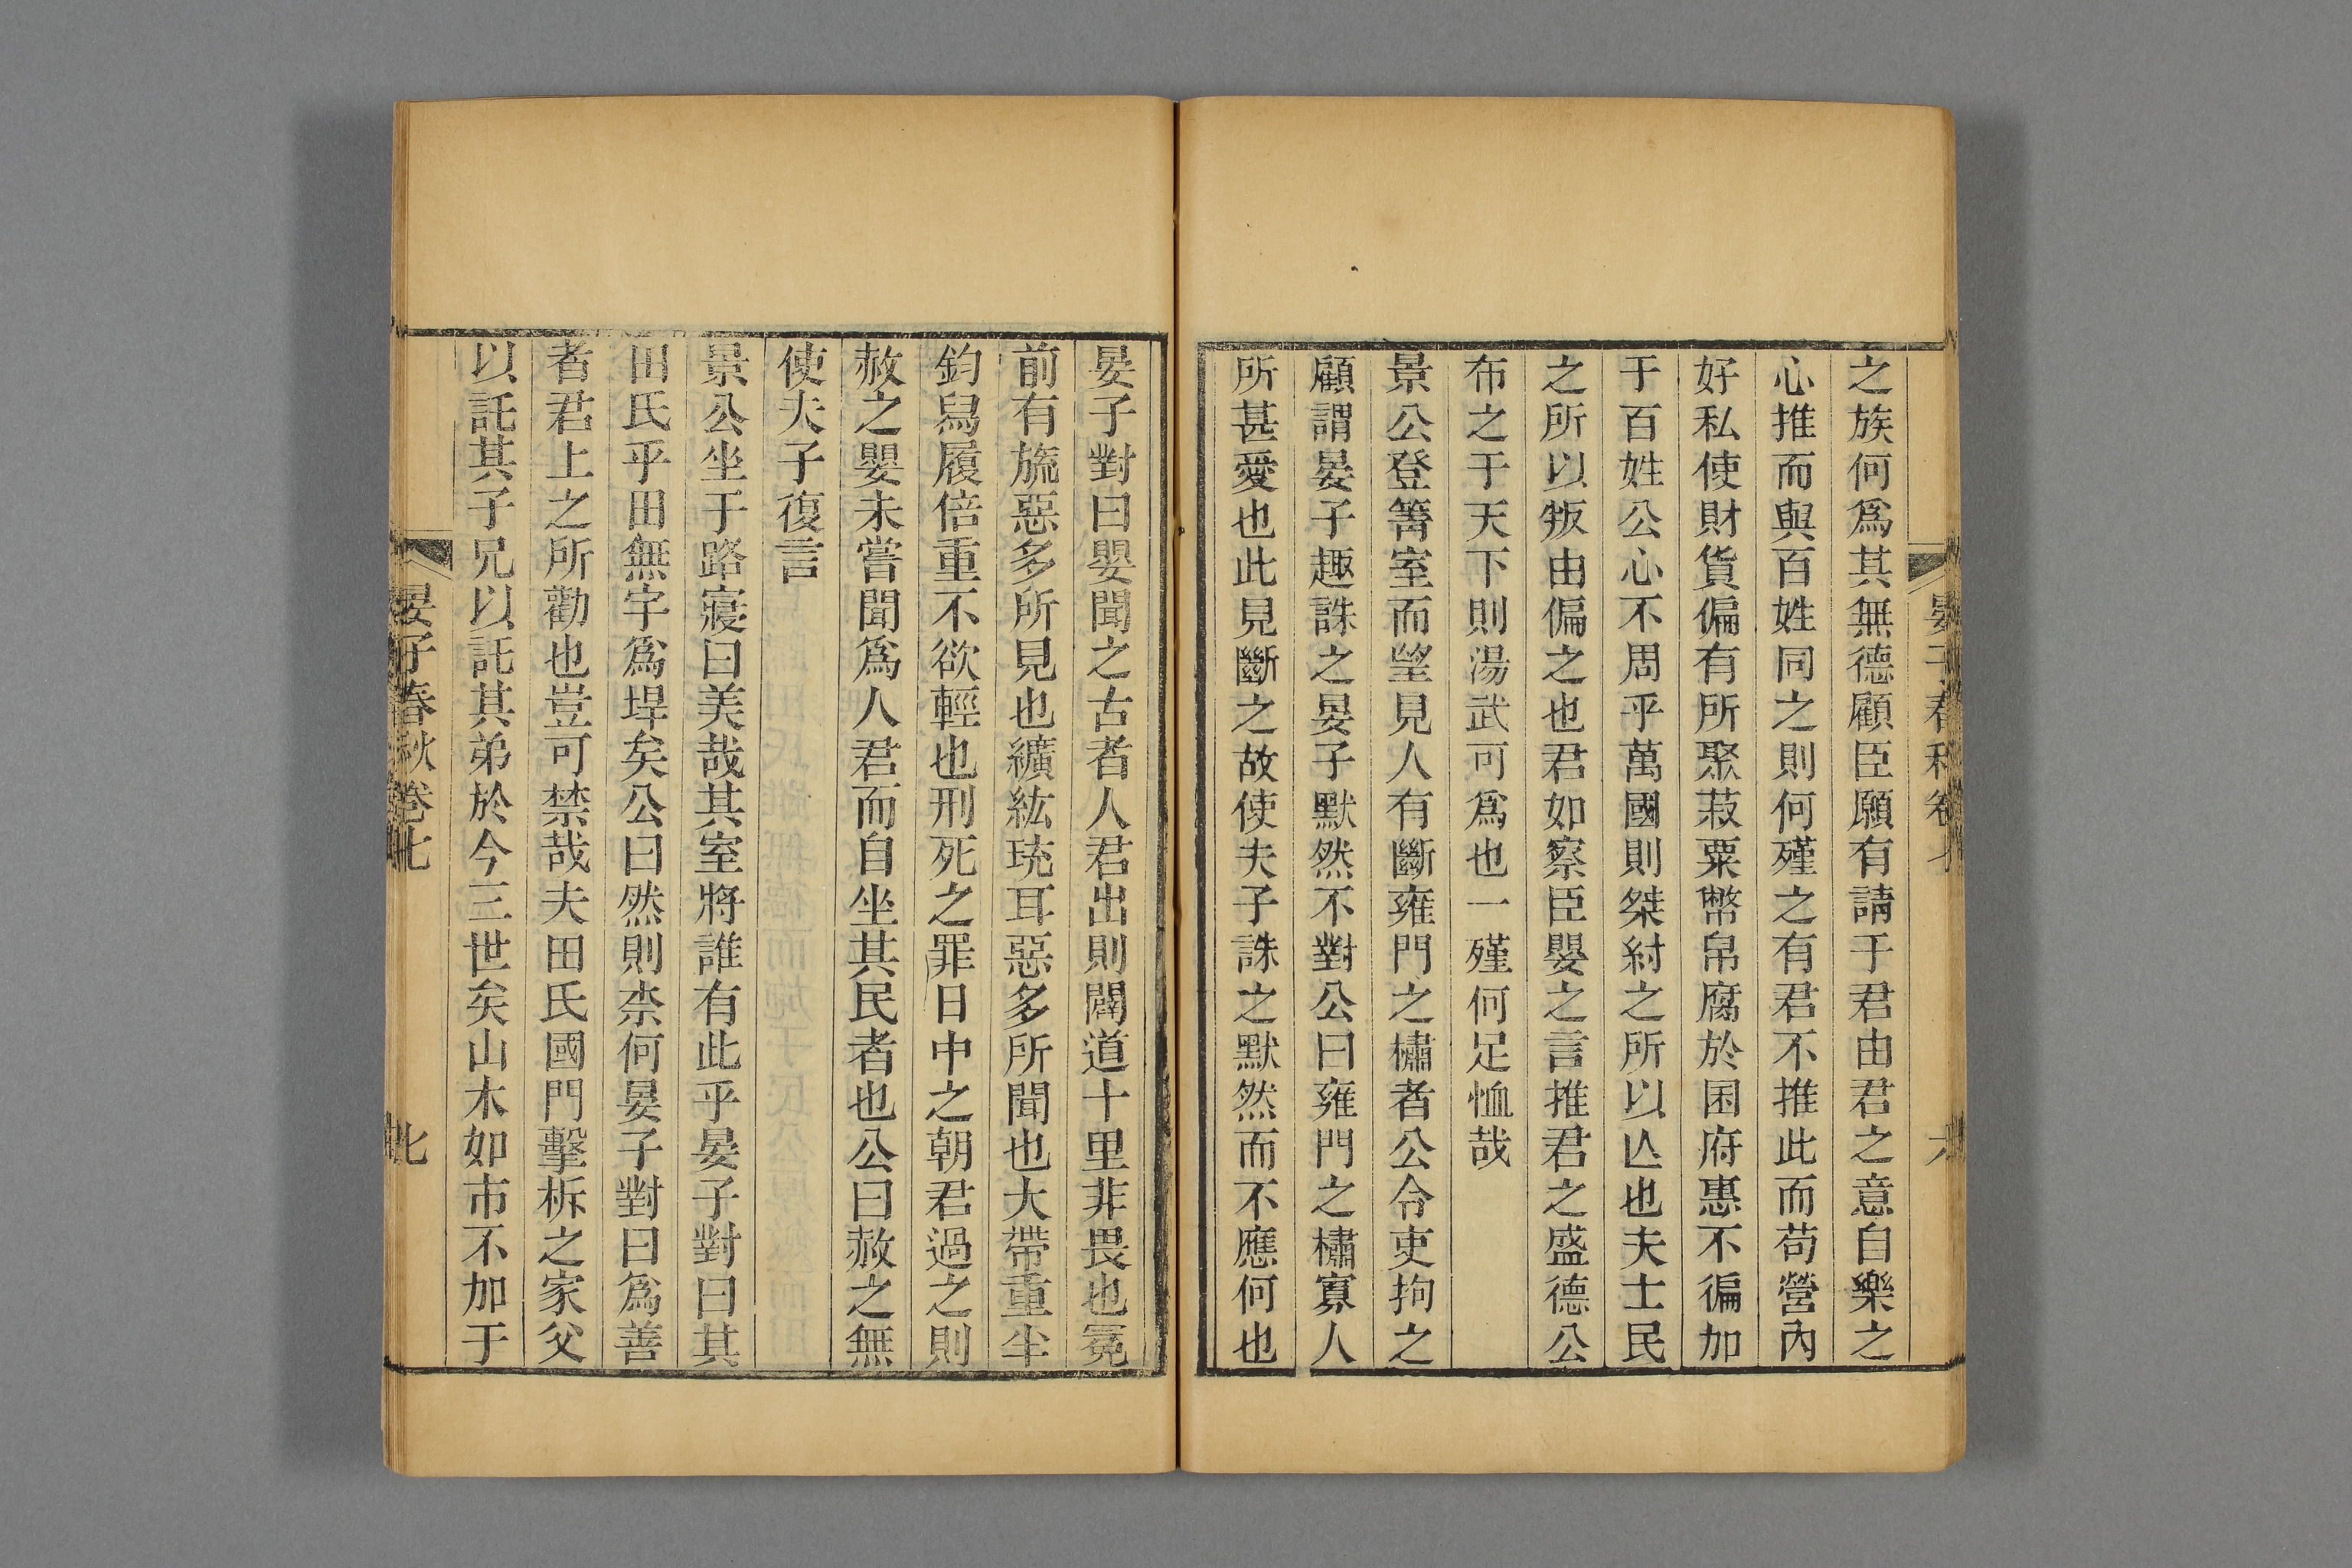 之族何爲其無德顧臣願有請于君由君之意自樂之
心推而與百姓同之則何殣之有君不推此而苟營內
好私使財貨偏有所聚菽粟幣帛腐於囷府惠不徧加
于百姓公心不周乎萬國則桀紂之所以亾也夫士民
之所以叛由偏之也君如察臣嬰之言推君之盛德公
布之于天下則湯武可爲也一殣何足恤哉
景公登箐室而望見人有斷雍門之橚者公令吏拘之
顧謂晏子趣誅之晏子默然不對公曰雍門之橚寡人
所甚愛也此見斷之故使夫子誅之默然而不應何也
晏子對曰嬰聞之古者人君出則闢道十里非畏也冕
前有旒惡多所見也纊紘珫耳惡多所聞也大帶重半
鈞舄履倍重不欲輕也刑死之罪日中之朝君過之則
赦之嬰未嘗聞爲人君而自坐其民者也公曰赦之無
使夫子復言
景公坐于路寢曰美哉其室將誰有此乎晏子對曰其
田氏乎田無宇爲垾矣公曰然則柰何晏子對曰爲善
者君上之所勸也豈可禁哉夫田氏國門擊柝之家父
以託其子兄以託其弟於今三世矣山木如市不加于
晏子春秋卷七
七